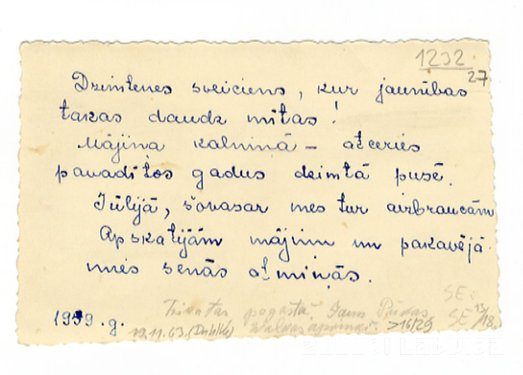 1232
27
Dzimtenes sveiciens, kur jaunības
takas daudz mītas!
Mājiņa kalniņā – atceries
pavadītos gadus dzimtā pusē.
Jūlijā, šovasar mes tur aizbraucām
Apskatijām mājiņu un pakavējā
mies senās atmiņās.
1959.g.
pagastā. Jana
19.11.63. >16/29
SE:
SE 13/18